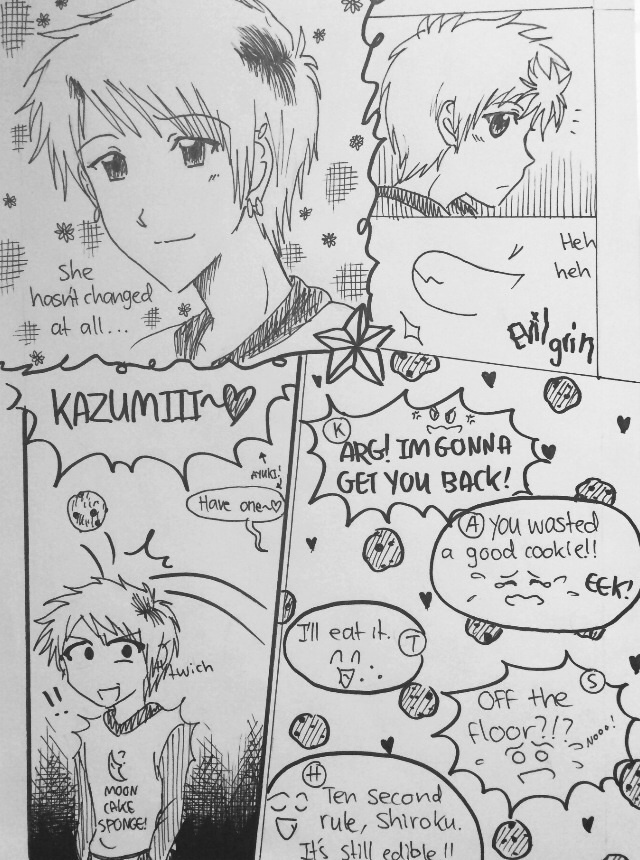 She
hasn't changed
at all...
Heh
heh
Evil
grin
KAZUMIII~
AYUKI!
Have one~
twich
!!
MOON
CAKE
SPONGE!
K
ARG! IM GONNA
GET YOU BACK!
A You wasted
a good cookie!!
EEK!
I'll eat it. T
S
OFF the
floor?!?
Nooo!
H
Ten second
rule, Shiroku.
It's still edible!!